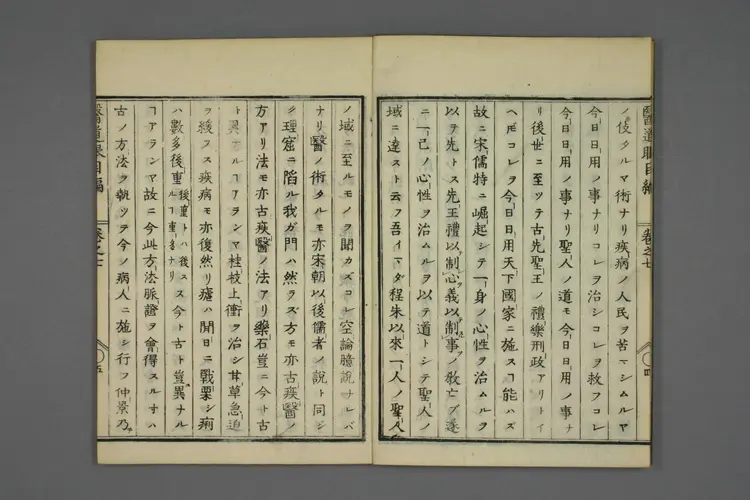 醫道眼目編 卷之七 四
ノ伎タルヤ術ナリ疾病ノ人民ヲ苦マシムルヤ
今日日用ノ事ナリコレヲ治シコレヲ救フコレ
今日日用ノ事ナリ聖人ノ道モ今日日用ノ事ナ
リ後世ニ至ツテ古先聖王ノ禮樂刑政アリトイ
ヘ𪜈コレヲ今日日用天下國家ニ施スヿ能ハズ
故ニ宋儒特ニ崛起シテ一身ノ心性ヲ治ムルヲ
以テ先トス先王禮以制心義以制事ノ敎亡ブ遂
ニ一己ノ心性ヲ治ムルヲ以テ道トシテ聖人ノ
域ニ達スト云フ吾イマダ程朱以來一人ノ聖人
ノ域ニ至ルモノヲ聞カズコレ空論臆說ナレバ
ナリ醫ノ術タルモ亦宋朝以後儒者ノ說ト同シ
ク理窟ニ陷ル我ガ門ハ然ラズ方モ亦古疾醫ノ
方アリ法モ亦古疾醫ノ法アリ藥石豈ニ今ト古
ト異ナルヿアランヤ桂枝上衝ヲ治シ甘草急迫
ヲ緩ス疾病モ亦復然リ瘧ハ間日ニ戰栗シ痢
ハ數多後重 後重トハ後 ルヿ重多ナリ 今ト古ト豈異ナル
ヿアランヤ故ニ今此方法脈證ヲ會得スル𪜈ハ
古ノ方法ヲ執ツテ今ノ病人ニ施シ行フ仲景乃
醫道眼目編 卷之七 五